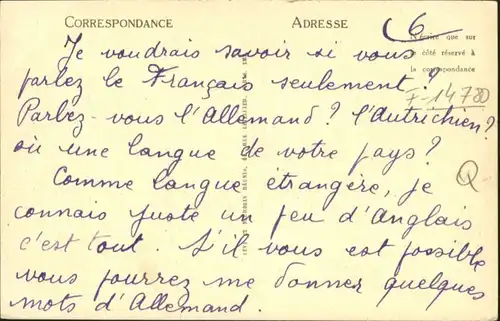 CORRESPONDANCE
ADRESSE
6
N'écrire que sur
le côté réservé à
la correspondance
Je voudrais savoir si vous
parlez le Français seulement?
F-14780
Parlez-vous l'Allemand? l'Autrichien?
où une langue de votre pays?
Comme langue étrangère, je
connais juste un peu d'Anglais
c'est tout. S'il vous est possible
vous pourrez me donner quelques
mots d'Allemand.